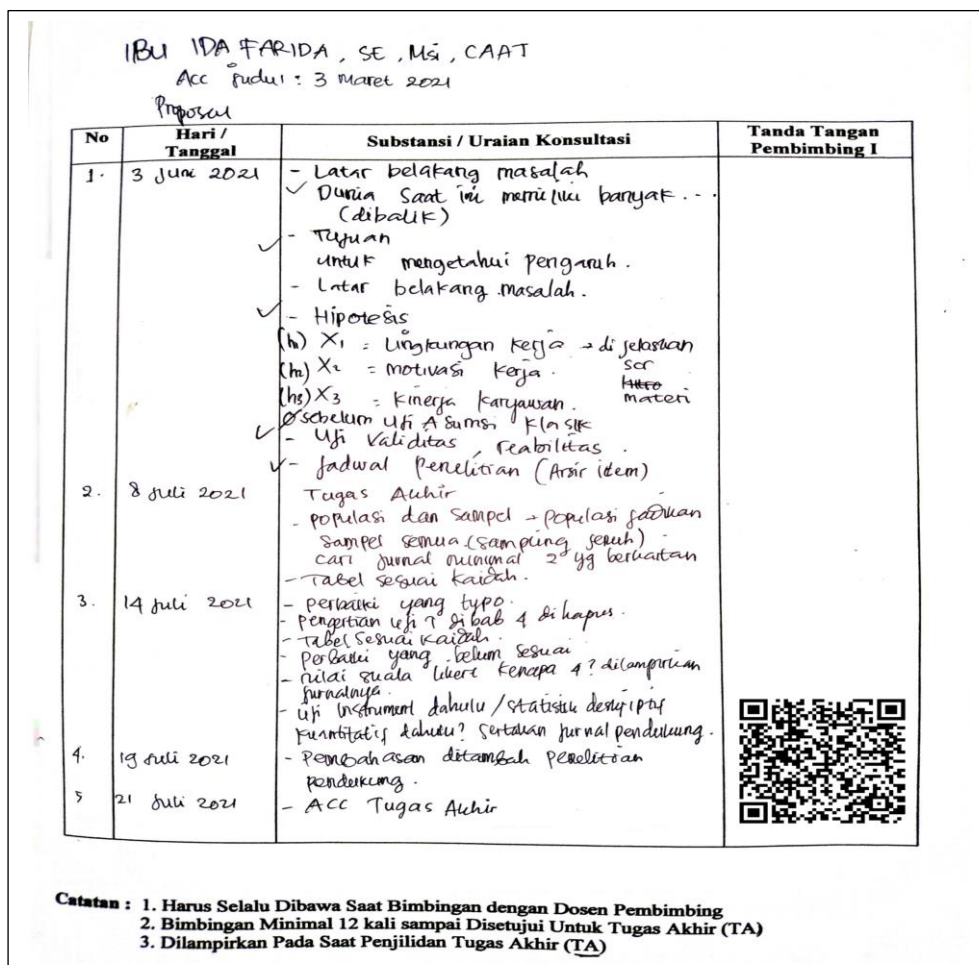 IBU IDA FARIDA, SE, Msi, CAAT
Acc Judul : 3 Maret 2021
Proposal
No Hari / Tanggal Substansi / Uraian Konsultasi Tanda Tangan Pembimbing I
1. 3 Juni 2021 - Latar belakang masalah
Dunia saat ini memiliki banyak ...
(dibalik)
- Tujuan
untuk mengetahui pengaruh.
- Latar belakang masalah.
- Hipotesis
(h1) X1 = Lingkungan Kerja → dijelaskan
(h2) X2 = motivasi Kerja. scr
(h3) X3 = Kinerja Karyawan. materi
sebelum Uji Asumsi Klasik
- Uji Validitas, reabilitas.
- Jadwal Penelitian (Arsir item)
2. 8 Juli 2021 Tugas Akhir
- populasi dan sampel → populasi jadikan
sampel semua (sampling jenuh)
cari jurnal minimal 2 yg berkaitan
- Tabel sesuai kaidah.
3. 14 Juli 2021 - perbaiki yang typo.
- Pengertian uji² dibab 4 dihapus.
- Tabel sesuai kaidah.
- Perbaiki yang belum sesuai
- nilai skala likert kenapa 4? dilampirkan
jurnalnya.
- Uji Instrument dahulu / statistik deskriptif
kuantitatif dahulu? sertakan jurnal pendukung.
4. 19 Juli 2021 - Pembahasan ditambah penelitian
pendukung.
5 21 Juli 2021 - ACC Tugas Akhir
Catatan : 1. Harus Selalu Dibawa Saat Bimbingan dengan Dosen Pembimbing
2. Bimbingan Minimal 12 kali sampai Disetujui Untuk Tugas Akhir (TA)
3. Dilampirkan Pada Saat Penjilidan Tugas Akhir (TA)